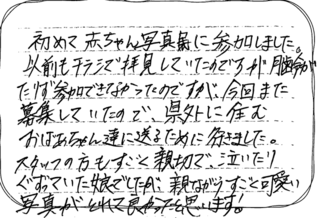 初めて赤ちゃん写真展に参加しました。
以前もチラシで拝見していたのですが月齢が
たりず参加できなかったのですが、今回また
募集していたので、県外に住む
おばあちゃん達に送るために行きました。
スタッフの方もすごく親切で、泣いたり
ぐずっていた娘でしたが、親ながらすごく可愛い
写真がとれて良かったと思います!